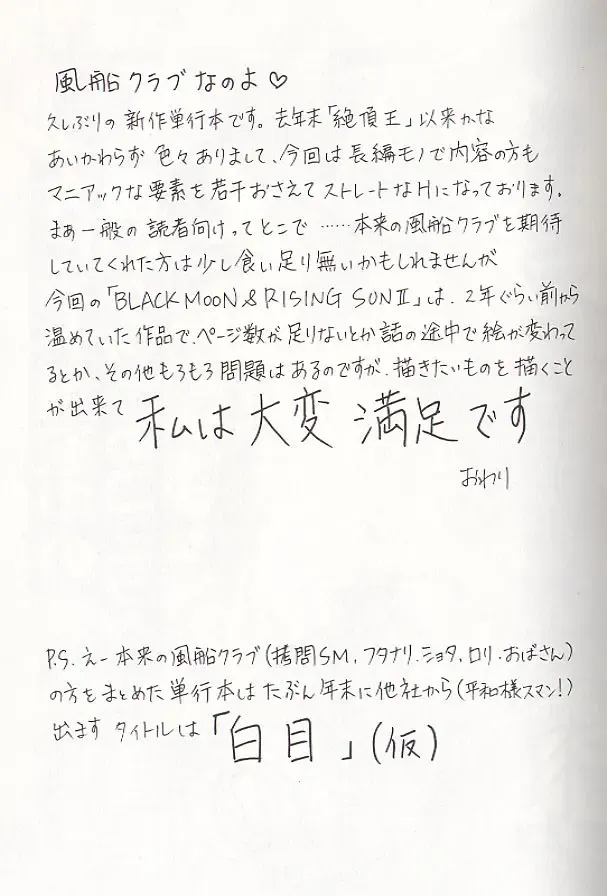 風船クラブなのよ♡
久しぶりの新作単行本です。去年末「絶頂王」以来かな
あいかわらず色々ありまして、今回は長編モノで内容の方も
マニアックな要素を若干おさえてストレートなHになっております。
まあ一般の読者向けってとこで……本来の風船クラブを期待
していてくれた方は少し食い足り無いかもしれませんが
今回の「BLACK MOON & RISING SUN II」は、2年ぐらい前から
温めていた作品で、ページ数が足りないとか話の途中で絵が変わって
るとか、その他もろもろ問題はあるのですが、描きたいものを描くこと
が出来て 私は大変満足です
おわり
P.S. えー本来の風船クラブ(拷問SM, フタナリ, ショタ, ロリ, おばさん)
の方をまとめた単行本はたぶん年末に他社から(平和様スマン!)
出ます タイトルは「白目」(仮)